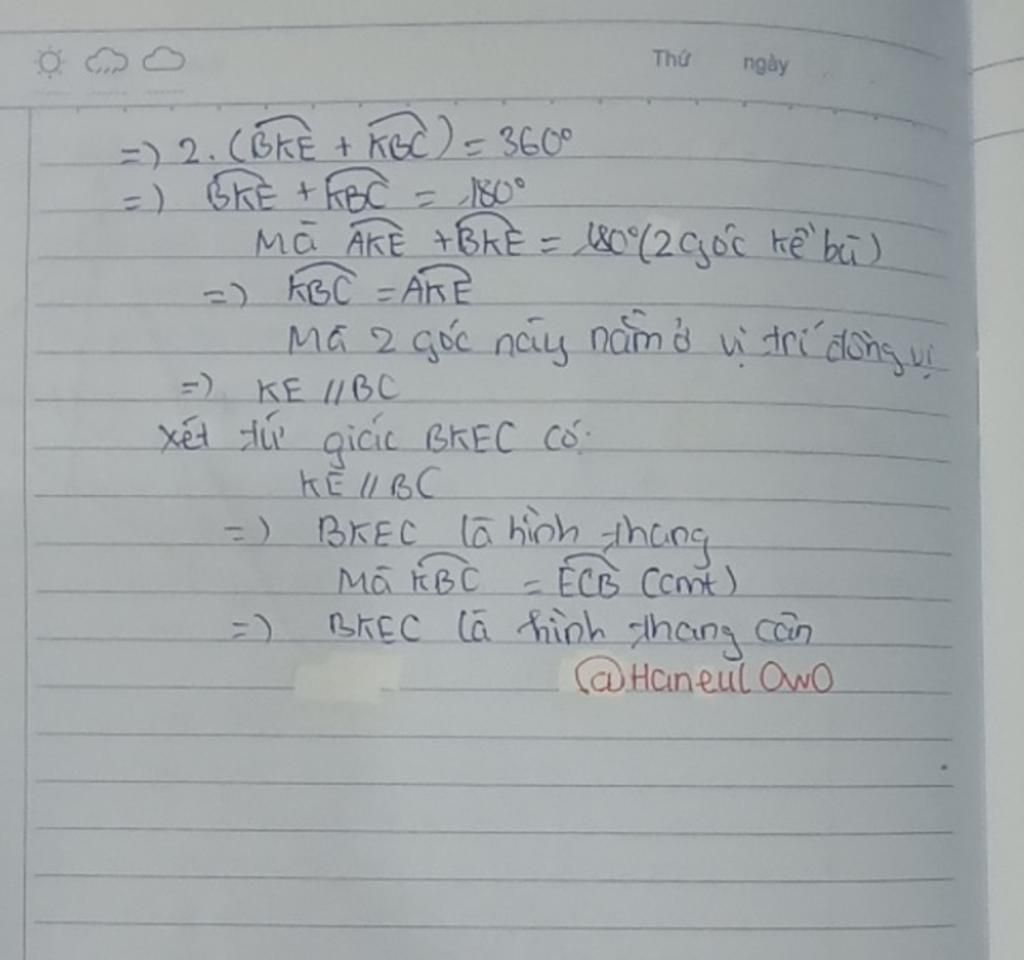 Thứ ngày
=) 2. (BKE + KBC) = 360°
=) BKE + KBC = 180°
Mà AKE + BKE = 180° (2 góc kề bù)
=) KBC = AKE
Mà 2 góc này nằm ở vị trí đồng vị
=) KE // BC
Xét tứ giác BKEC có:
KE // BC
=) BKEC là hình thang
Mà KBC = ECB (cmt)
=) BKEC là hình thang cân
@Haneul OwO